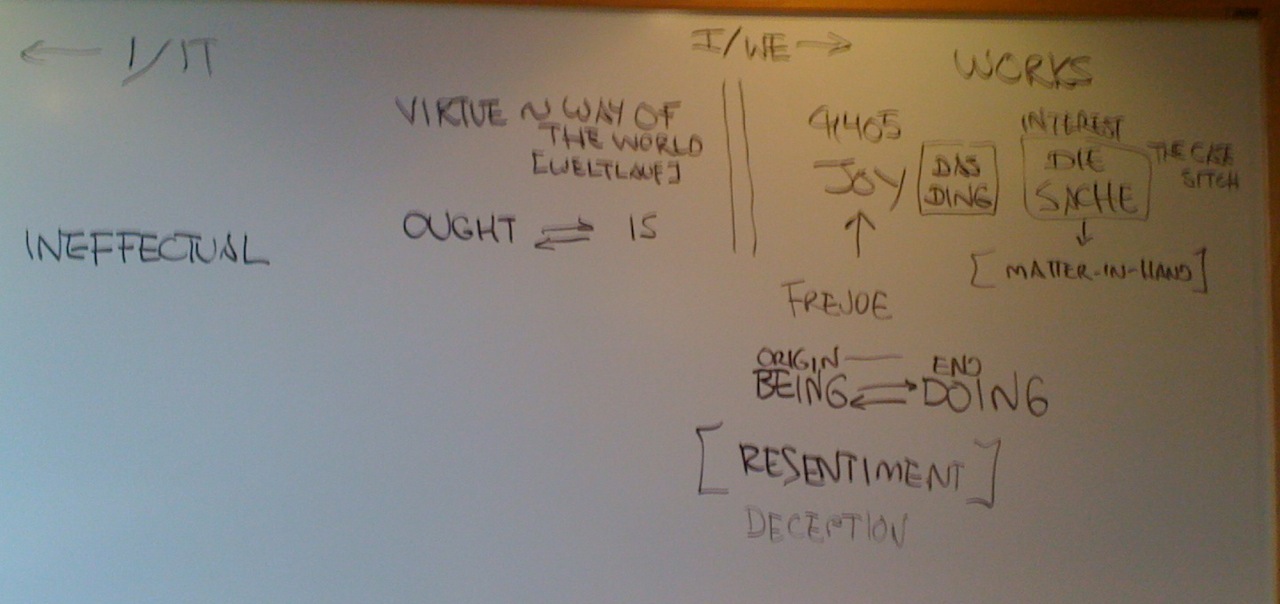 ← I/IT
I/WE →
WORKS
VIRTUE ~ WAY OF
THE WORLD
[WELTLAUF]
OUGHT ⇌ IS
INEFFECTUAL
¶405
JOY
DAS
DING
INTEREST
DIE
SACHE
THE CASE
↓
[MATTER-IN-HAND]
↑
FREUDE
ORIGIN — END
BEING ⇌ DOING
[RESENTIMENT]
DECEPTION